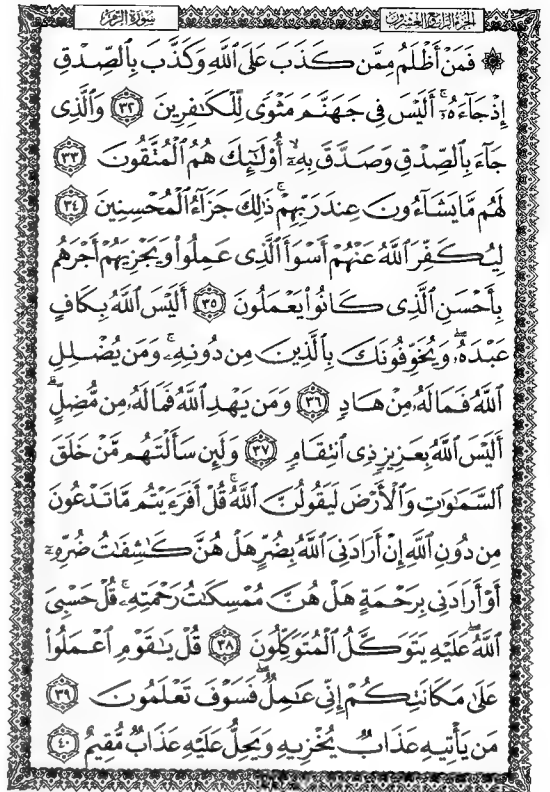 الجزء الرابع والعشرون سورة الزمر
۞ فَمَنْ أَظْلَمُ مِمَّن كَذَبَ عَلَى ٱللَّهِ وَكَذَّبَ بِٱلصِّدْقِ
إِذْ جَآءَهُۥٓ ۚ أَلَيْسَ فِى جَهَنَّمَ مَثْوًى لِّلْكَـٰفِرِينَ ٣٢ وَٱلَّذِى
جَآءَ بِٱلصِّدْقِ وَصَدَّقَ بِهِۦٓ ۙ أُو۟لَـٰٓئِكَ هُمُ ٱلْمُتَّقُونَ ٣٣
لَهُم مَّا يَشَآءُونَ عِندَ رَبِّهِمْ ۚ ذَٰلِكَ جَزَآءُ ٱلْمُحْسِنِينَ ٣٤
لِيُكَفِّرَ ٱللَّهُ عَنْهُمْ أَسْوَأَ ٱلَّذِى عَمِلُوا۟ وَيَجْزِيَهُمْ أَجْرَهُم
بِأَحْسَنِ ٱلَّذِى كَانُوا۟ يَعْمَلُونَ ٣٥ أَلَيْسَ ٱللَّهُ بِكَافٍ
عَبْدَهُۥ ۖ وَيُخَوِّفُونَكَ بِٱلَّذِينَ مِن دُونِهِۦ ۚ وَمَن يُضْلِلِ
ٱللَّهُ فَمَا لَهُۥ مِنْ هَادٍ ٣٦ وَمَن يَهْدِ ٱللَّهُ فَمَا لَهُۥ مِن مُّضِلٍّ ۗ
أَلَيْسَ ٱللَّهُ بِعَزِيزٍ ذِى ٱنتِقَامٍ ٣٧ وَلَئِن سَأَلْتَهُم مَّنْ خَلَقَ
ٱلسَّمَـٰوَٰتِ وَٱلْأَرْضَ لَيَقُولُنَّ ٱللَّهُ ۚ قُلْ أَفَرَءَيْتُم مَّا تَدْعُونَ
مِن دُونِ ٱللَّهِ إِنْ أَرَادَنِىَ ٱللَّهُ بِضُرٍّ هَلْ هُنَّ كَـٰشِفَـٰتُ ضُرِّهِۦٓ
أَوْ أَرَادَنِى بِرَحْمَةٍ هَلْ هُنَّ مُمْسِكَـٰتُ رَحْمَتِهِۦ ۚ قُلْ حَسْبِىَ
ٱللَّهُ ۖ عَلَيْهِ يَتَوَكَّلُ ٱلْمُتَوَكِّلُونَ ٣٨ قُلْ يَـٰقَوْمِ ٱعْمَلُوا۟
عَلَىٰ مَكَانَتِكُمْ إِنِّى عَـٰمِلٌ ۖ فَسَوْفَ تَعْلَمُونَ ٣٩
مَن يَأْتِيهِ عَذَابٌ يُخْزِيهِ وَيَحِلُّ عَلَيْهِ عَذَابٌ مُّقِيمٌ ٤٠